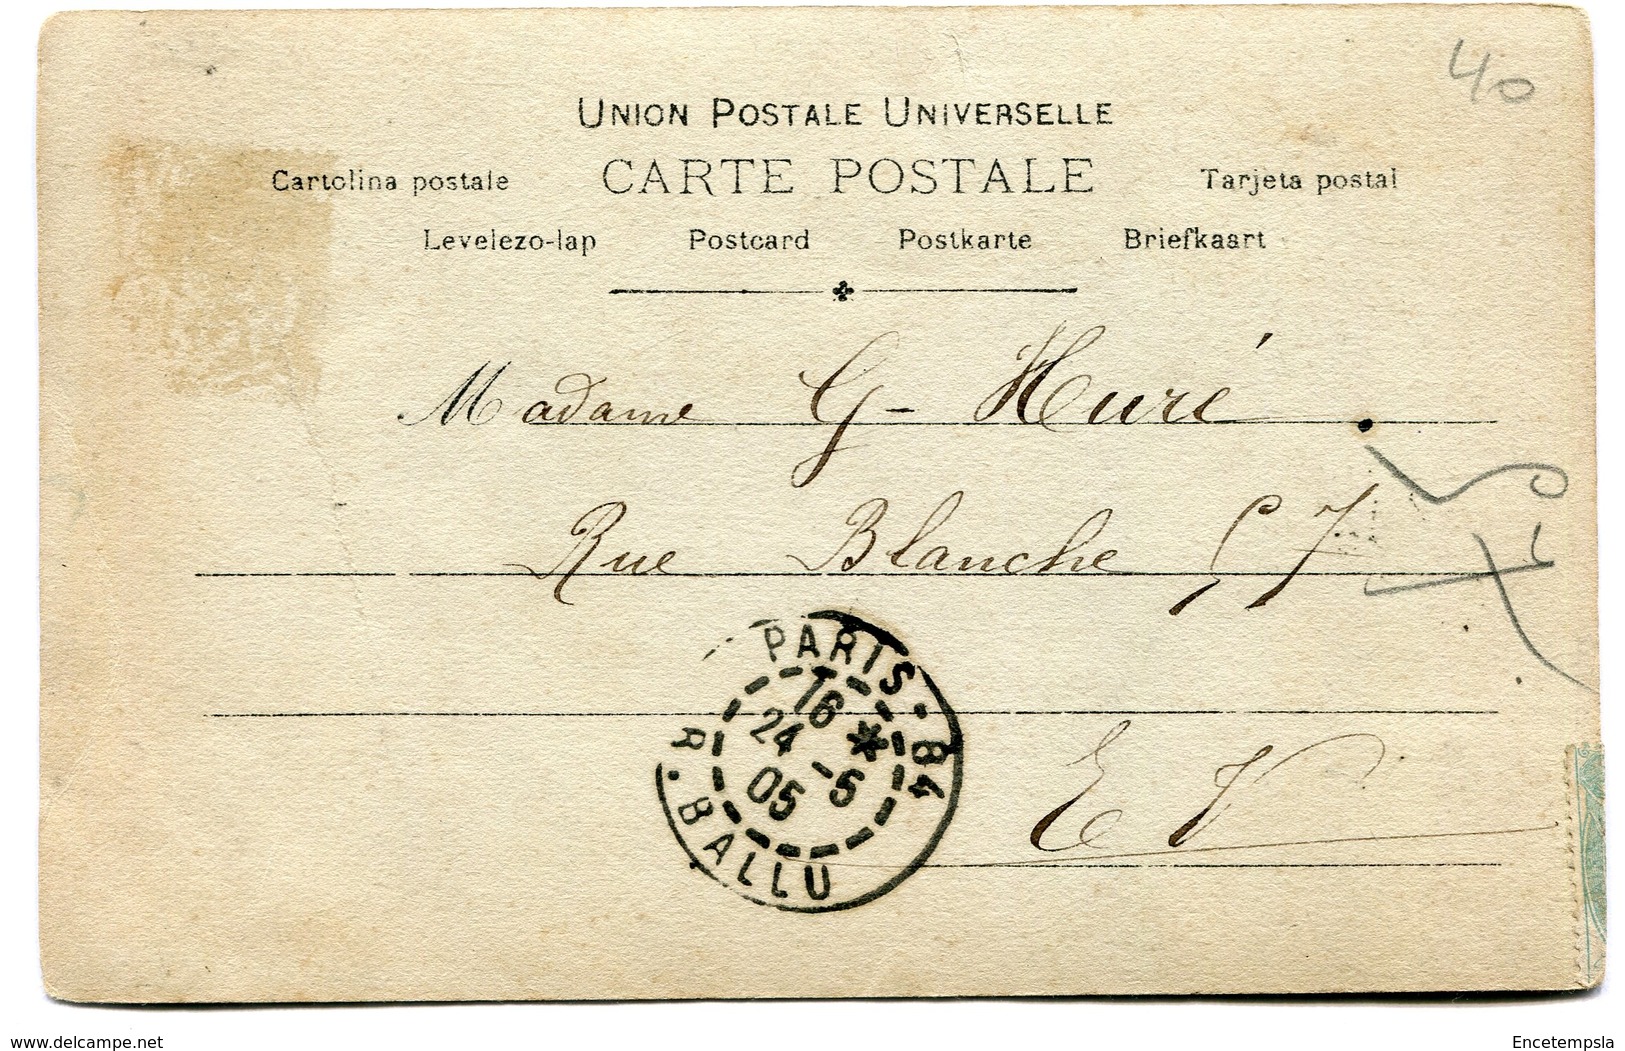 40
UNION POSTALE UNIVERSELLE
Cartolina postale CARTE POSTALE Tarjeta postal
Levelezo-lap Postcard Postkarte Briefkaart
Madame G- Huré.
Rue Blanche 57
E V
PARIS - 84
16 *
24 -5
05
R. BALLU
www.delcampe.net
Encetempsla